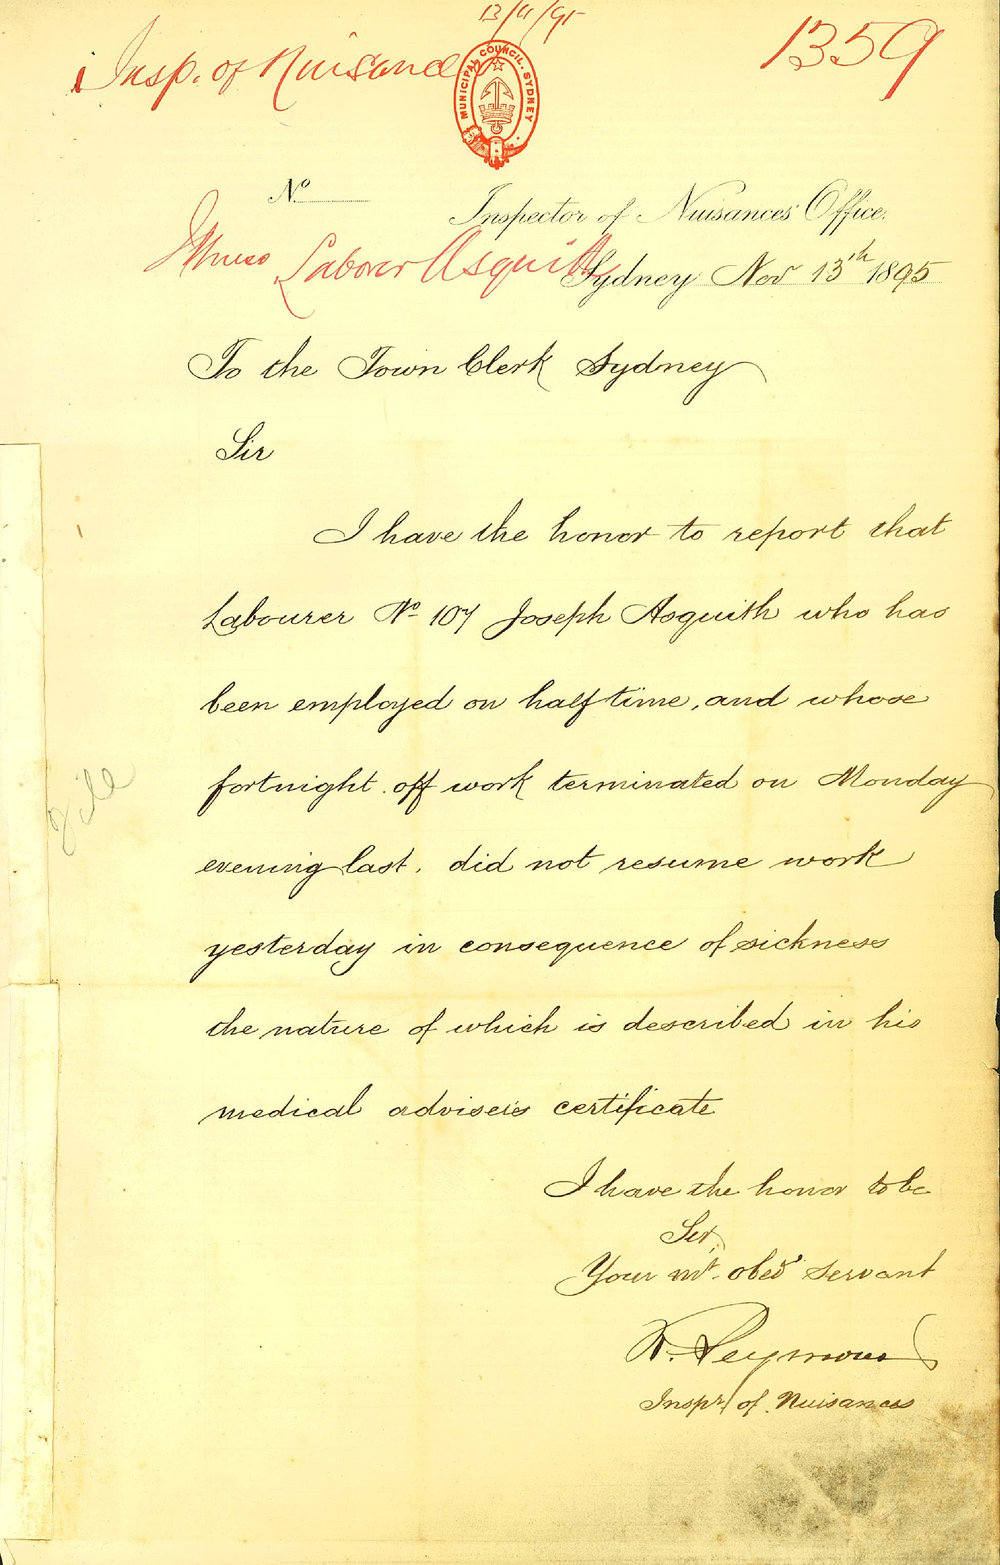 13/11/95
Insp. of Nuisances
1359
MUNICIPAL COUNCIL. SYDNEY
No
Inspector of Nuisances' Office.
Illness Laborer Asquith
Sydney Nov 13th 1895
To the Town Clerk Sydney
Sir
I have the honor to report that
Labourer No 107 Joseph Asquith who has
been employed on half time, and whose
fortnight off work terminated on Monday
evening last, did not resume work
yesterday in consequence of sickness
the nature of which is described in his
medical adviser's certificate
I have the honor to be
Sir,
Your mt. obedt servant
R. Seymour
Inspr of Nuisances
File